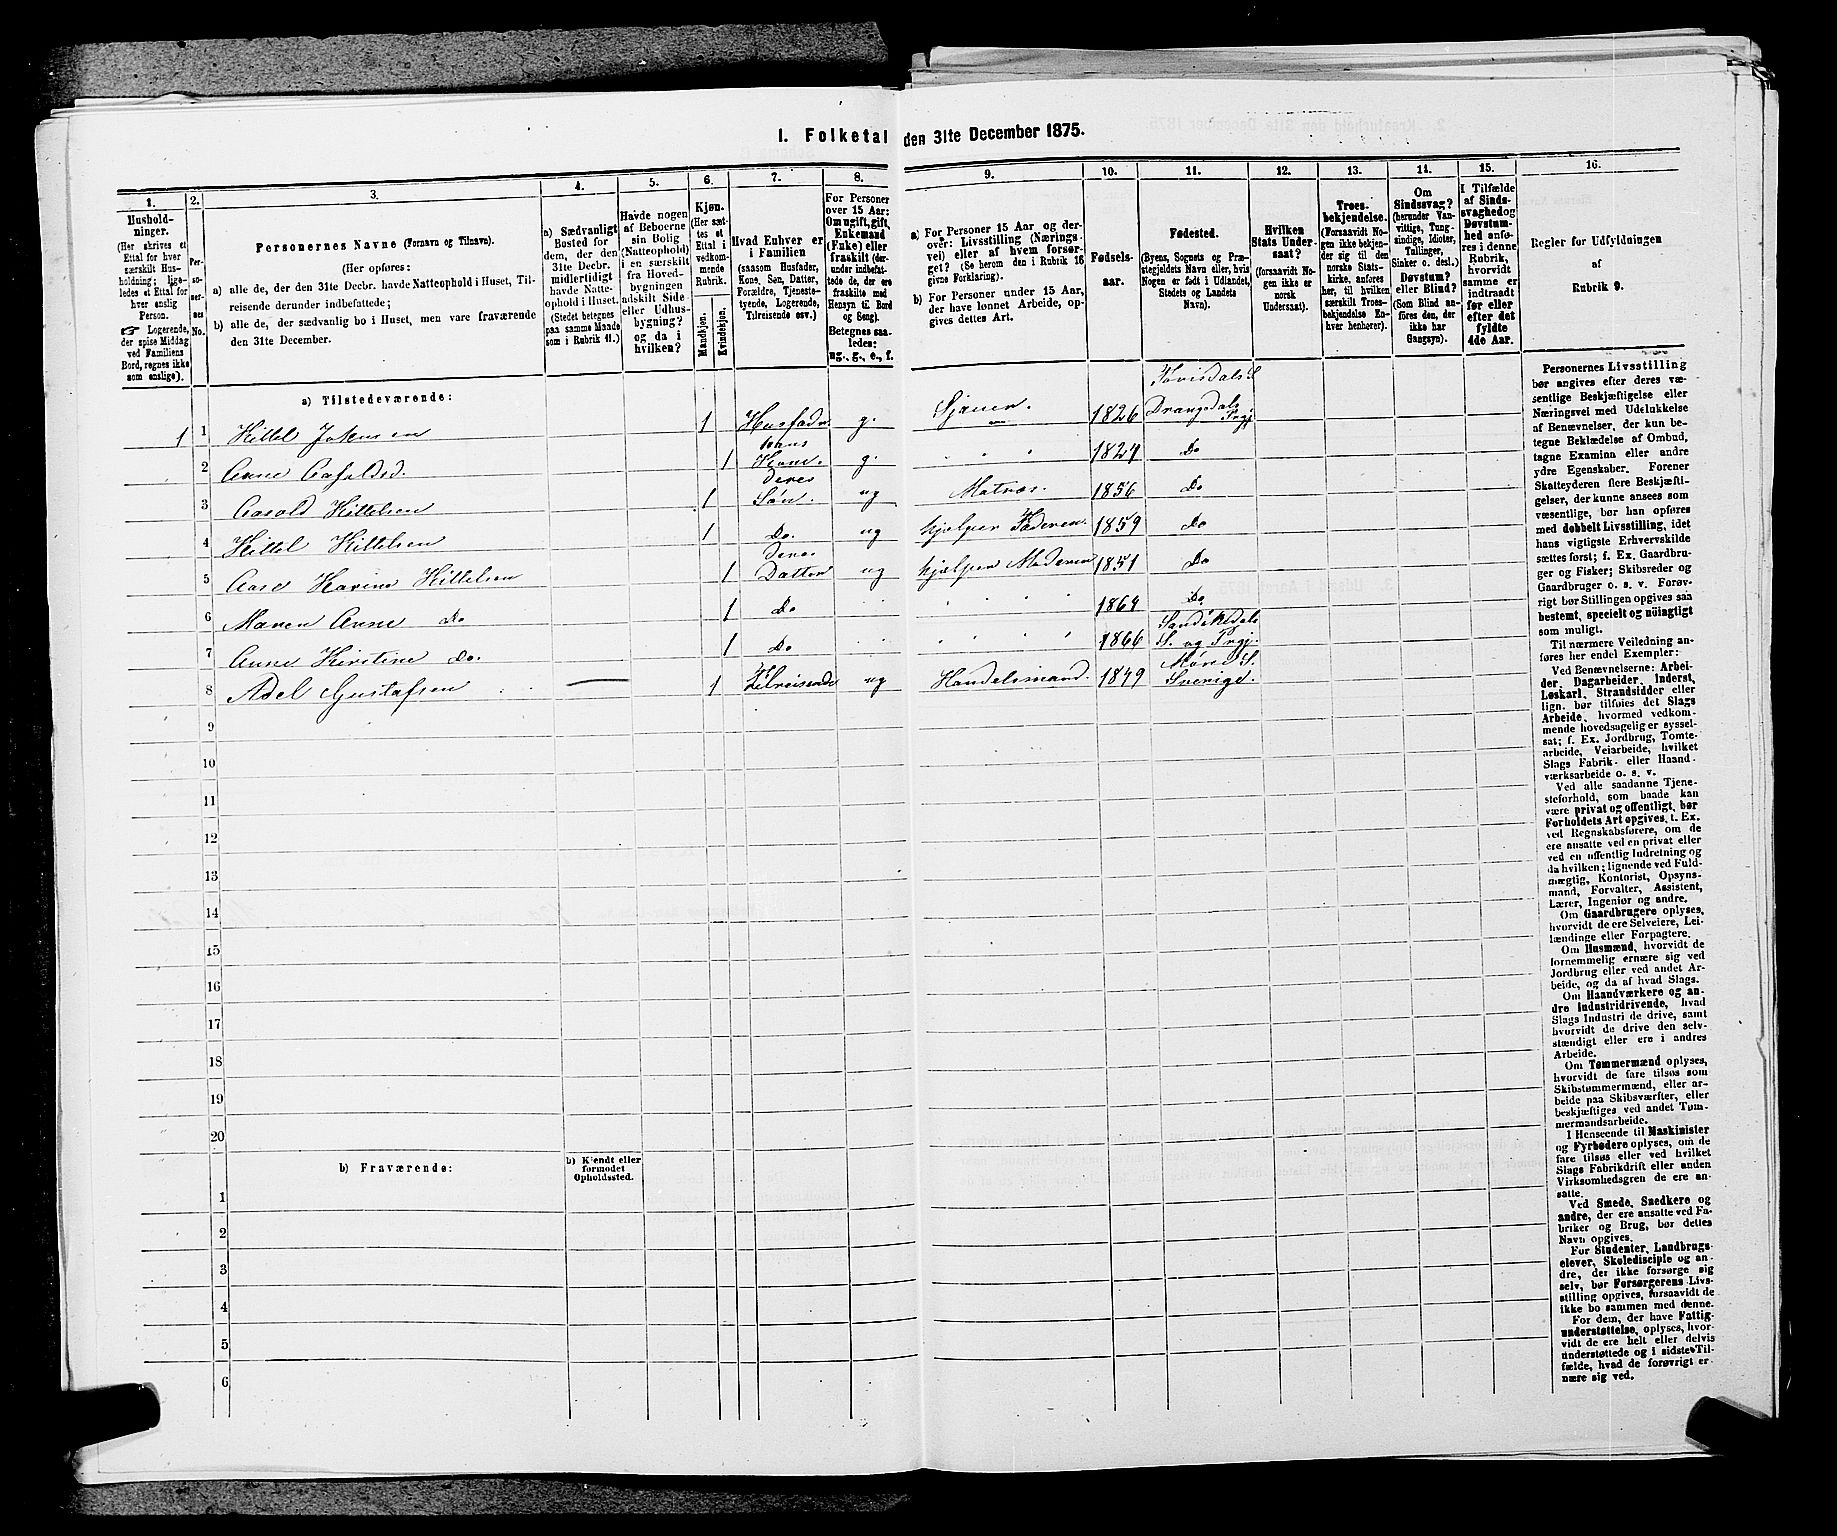 I. Folketal den 31te December 1875.
1.
Hushold-
ninger.
(Her skrives et
Ettal for hver
særskilt Hus-
holdning; lige-
ledes et Ettal for
hver enslig
Person.
☞ Logerende,
der spise Middag
ved Familiens
Bord, regnes ikke
som enslige).
2.
Per-
so-
ner-
nes
No.
3.
Personernes Navne (Fornavn og Tilnavn).
(Her opføres:
a) alle de, der den 31te Decbr. havde Natteophold i Huset, Til-
reisende derunder indbefattede;
b) alle de, der sædvanlig bo i Huset, men vare fraværende
den 31te December.
4.
a) Sædvanligt
Bosted for
dem, der den
31te Decbr.
midlertidigt
havde Natte-
ophold i Huset.
(Stedet betegnes
paa samme Maade
som i Rubrik 11.)
5.
Havde nogen
af Beboerne
sin Bolig
(Natteophold)
i en særskilt
fra Hoved-
bygningen
adskilt Side-
eller Udhus-
bygning?
og da i
hvilken?
6.
Kjøn.
(Her sæt-
tes et
Ettal i
vedkom-
mende
Rubrik.
Mandkjøn.
Kvindekjøn.
7.
Hvad Enhver er
i Familien
(saasom Husfader,
Kone, Søn, Datter,
Forældre, Tjeneste-
tyende, Logerende,
Tilreisende osv.)
8.
For Personer
over 15 Aar:
Om ugift, gift,
Enkemand
(Enke) eller
fraskilt (der-
under indbefat-
tede de, der ere
fraskilte med
Hensyn til Bord
og Seng).
Betegnes saa-
ledes:
ug., g., e., f.
9.
a) For Personer 15 Aar og der-
over: Livsstilling (Nærings-
vei) eller af hvem forsør-
get? (Se herom den i Rubrik 16
givne Forklaring).
b) For Personer under 15 Aar,
der have lønnet Arbeide, op-
gives dettes Art.
10.
Fødsels-
aar.
11.
Fødested.
(Byens, Sognets og Præ-
stegjeldets Navn eller, hvis
Nogen er født i Udlandet,
Stedets og Landets
Navn).
12.
Hvilken
Stats Under-
saat?
(forsaavidt No-
gen ikke er
norsk
Undersaat).
13.
Troes-
bekjendelse.
(Forsaavidt No-
gen ikke bekjen-
der sig til den
norske Stats-
kirke, anføres
her, til hvilken
særskilt Troes-
bekjendelse En-
hver henhører).
14.
Om
Sindssvag?
(herunder Van-
vittige, Tung-
sindige, Idioter,
Tullinger,
Sinker o. desl.)
Døvstum?
eller Blind?
(Som Blind an-
føres den, der
ikke har
Gangsyn).
15.
I Tilfælde
af Sinds-
svaghed og
Døvstum-
hed anfø-
res i denne
Rubrik,
hvorvidt
samme er
indtraadt
før eller
efter det
fyldte
4de Aar.
16.
Regler for Udfyldningen
af
Rubrik 9.
a) Tilstedeværende:
1 1 Kittel Jokumsen 1 Husfader g. Sjauer. 1826 Tovisdals S Drangedals Prgj
2 Anne Aasoldsd. 1 hans Kone. g. " " " 1824 Do
3 Aasold Kittelsen 1 deres Søn. ug Matros. 1856 Do
4 Kittel Kittelsen 1 Do. ug hjælper Faderen. 1859 Do
5 Aase Karine Kittelsen 1 deres Datter ug hjælper Moderen 1851 Do
6 Maren Anne Do 1 Do " " " " 1864 Do
7 Anne Kirstine Do. 1 Do " " " " 1866 Sandøkedals S. og Prgj.
8 Adel Gustafsen 1 Tilreisende ug Handelsmand. 1849 S. Sverige.
9
10
11
12
13
14
15
16
17
18
19
20
b) Fraværende:
b) Kjendt eller
formodet
Opholdssted.
1
2
3
4
5
6
Personernes Livsstilling
bør angives efter deres væ-
sentlige Beskjæftigelse eller
Næringsvei med Udelukkelse
af Benævnelser, der kun be-
tegne Beklædelse af Ombud,
tagne Examina eller andre
ydre Egenskaber. Forener
Skatteyderen flere Beskjæfti-
gelser, der kunne ansees som
væsentlige, bør han opføres
med dobbelt Livsstilling, idet
hans vigtigste Erhvervskilde
sættes først; f. Ex. Gaardbru-
ger og Fisker; Skibsreder og
Gaardbruger o. s. v. Forøv-
rigt bør Stillingen opgives saa
bestemt, specielt og nøiagtigt
som muligt.
Til nærmere Veiledning an-
føres her endel Exempler:
Ved Benævnelserne: Arbei-
der, Dagarbeider, Inderst,
Løskarl, Strandsidder eller
lign. bør tilføies det Slags
Arbeide, hvormed vedkom-
mende hovedsagelig er syssel-
sat; f. Ex. Jordbrug, Tomte-
arbeide, Veiarbeide, hvilket
Slags Fabrik- eller Haand-
værksarbeide o. s. v.
Ved alle saadanne Tjene-
steforhold, som baade kan
være privat og offentligt, bør
Forholdets Art opgives, t. Ex.
ved Regnskabsførere, om de
ere ansatte ved en privat eller
ved en offentlig Indretning og
da hvilken; lignende ved Fuld-
mægtig, Kontorist, Opsyns-
mand, Forvalter, Assistent,
Lærer, Ingeniør og andre.
Om Gaardbrugere oplyses,
hvorvidt de ere Selveiere, Lei-
lændinge eller Forpagtere.
Om Husmænd, hvorvidt de
fornemmelig ernære sig ved
Jordbrug eller ved andet Ar-
beide, og da af hvad Slags.
Om Haandværkere og an-
dre Industridrivende, hvad
Slags Industri de drive, samt
hvorvidt de drive den selv-
stændigt eller ere i andres
Arbeide.
Om Tømmermænd oplyses,
hvorvidt de fare tilsøs som
Skibstømmermænd, eller ar-
beide paa Skibsværfter, eller
beskjæftiges ved andet Tøm-
mermandsarbeide.
I Henseende til Maskinister
og Fyrbødere oplyses, om de
fare tilsøs eller ved hvilket
Slags Fabrikdrift eller anden
Virksomhedsgren de ere an-
satte.
Ved Smede, Snedkere og
andre, der ere ansatte ved Fa-
briker og Brug, bør dettes
Navn opgives.
For Studenter, Landbrugs-
elever, Skoledisciple og an-
dre, der ikke forsørge sig
selv, bør Forsørgerens Livs-
stilling opgives, forsaavidt de
ikke bo sammen med denne.
For dem, der have Fattig-
understøttelse, oplyses, hvor-
vidt de ere helt eller delvis
understøttede og i sidste Til-
fælde, hvad de forøvrigt er-
nære sig ved.